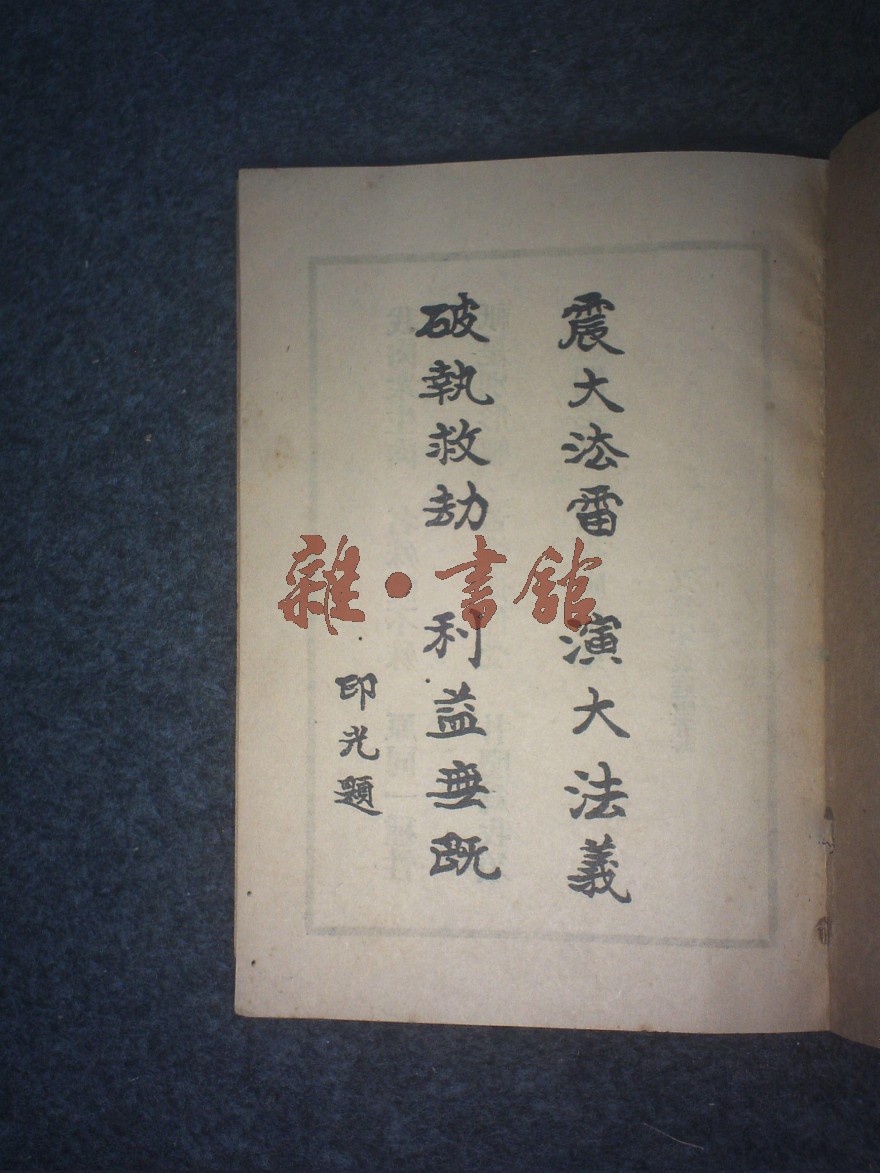 震大法雷 演大法義
破執救劫 利益無既
印光題
雜·書館